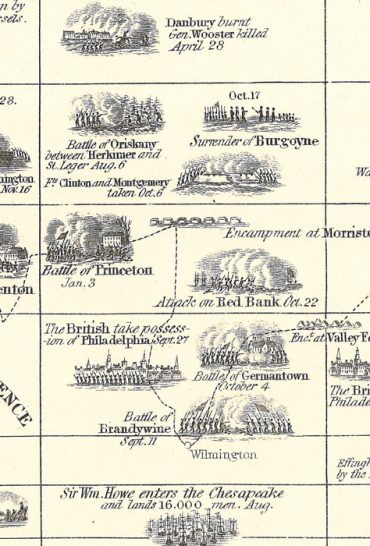 n by
sels.
Danbury burnt
Gen. Wooster killed
April 28
28.
Oct. 17
Battle of Oriskany
between Herkimer and
St. Leger Aug. 6
Surrender of Burgoyne
nington
Nov. 16
Fts. Clinton and Montgomery
taken Oct. 6
Wa
Encampment at Morristo
Battle of Princeton
Jan. 3
enton
Attack on Red Bank Oct. 22
The British take possess-
ion of Philadelphia Sept. 27
Enct. at Valley Fo
Battle of Germantown
October 4
The Bri
Philade
ENCE
Battle of
Brandywine
Sept. 11
Wilmington
Effingh
by the
Sir Wm. Howe enters the Chesapeake
and lands 16.000 men. Aug.